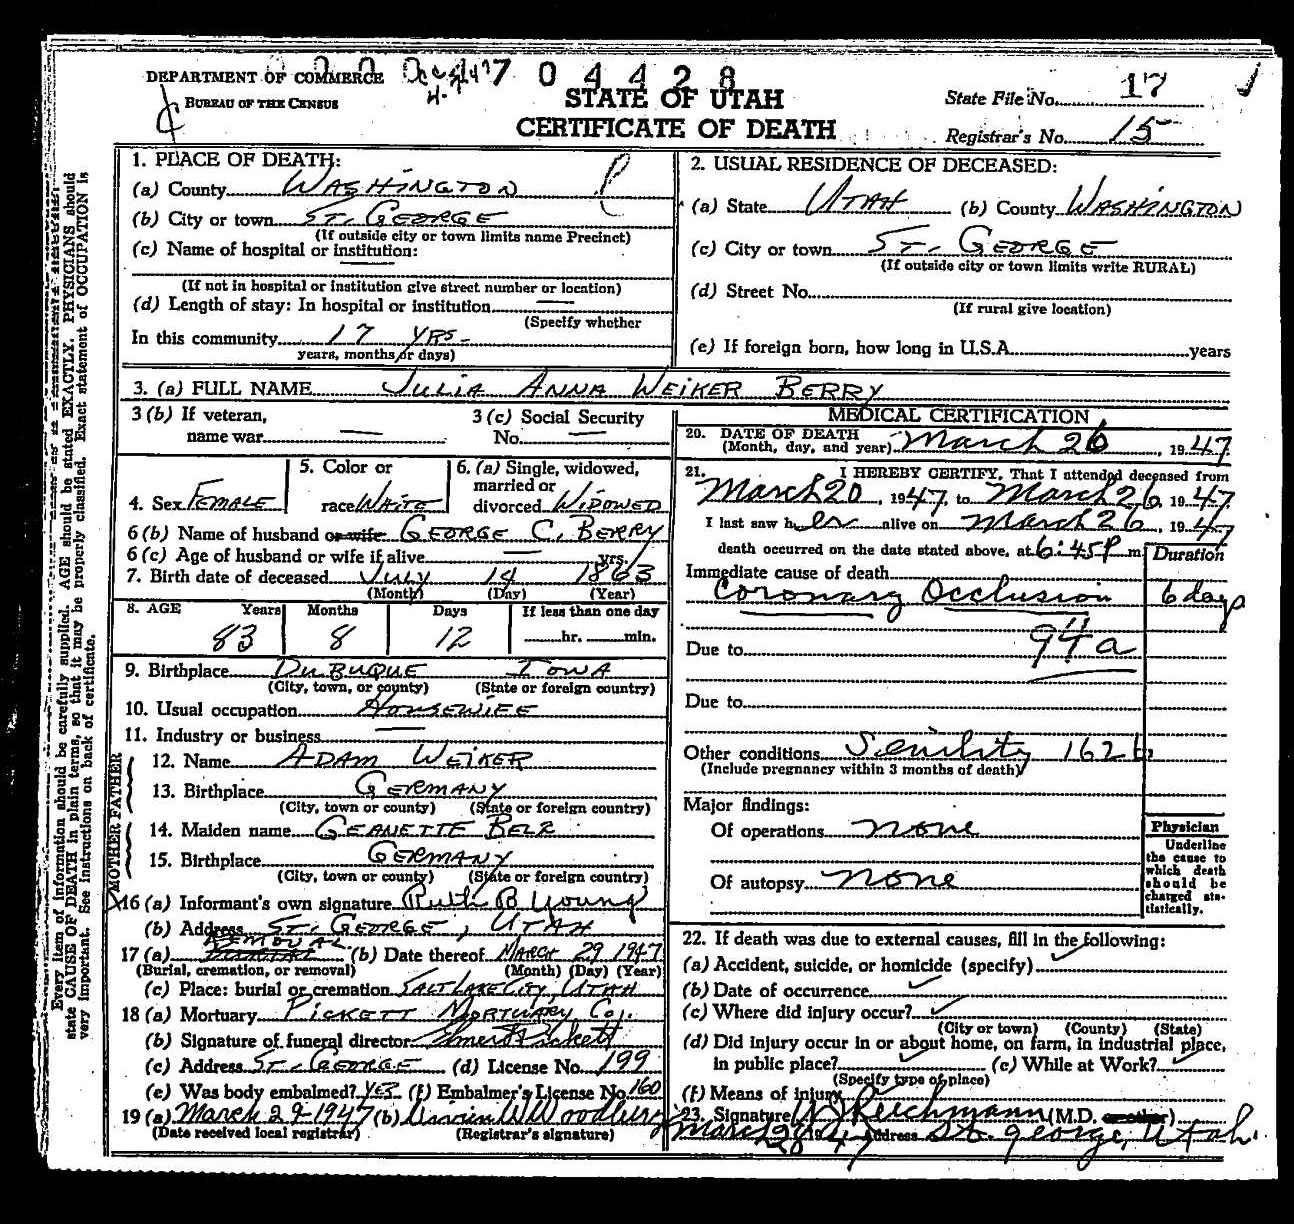 DEPARTMENT OF COMMERCE
BUREAU OF THE CENSUS
7 04428
STATE OF UTAH
CERTIFICATE OF DEATH
State File No. 17
Registrar's No. 15
Every item of information should be carefully supplied. AGE should be stated EXACTLY. PHYSICIANS should
state CAUSE OF DEATH in plain terms, so that it may be properly classified. Exact statement of OCCUPATION is
very important. See instructions on back of certificate.
1. PLACE OF DEATH:
(a) County WASHINGTON
(b) City or town ST. GEORGE
(If outside city or town limits name Precinct)
(c) Name of hospital or institution: —
(If not in hospital or institution give street number or location)
(d) Length of stay: In hospital or institution —
(Specify whether
In this community 17 YRS-
years, months or days)
2. USUAL RESIDENCE OF DECEASED:
(a) State UTAH (b) County WASHINGTON
(c) City or town ST. GEORGE
(If outside city or town limits write RURAL)
(d) Street No.
(If rural give location)
(e) If foreign born, how long in U.S.A. years
3. (a) FULL NAME JULIA ANNA WEIKER BERRY
3 (b) If veteran,
name war —
3 (c) Social Security
No. —
4. Sex FEMALE
5. Color or
race WHITE
6. (a) Single, widowed,
married or
divorced WIDOWED
6 (b) Name of husband or wife GEORGE C. BERRY
6 (c) Age of husband or wife if alive — yrs.
7. Birth date of deceased JULY 14 1863
(Month) (Day) (Year)
8. AGE Years Months Days If less than one day
83 8 12 hr. min.
9. Birthplace DUBUQUE IOWA
(City, town, or county) (State or foreign country)
10. Usual occupation HOUSEWIFE
11. Industry or business —
FATHER
12. Name ADAM WEIKER
13. Birthplace GERMANY
(City, town or county) (State or foreign country)
MOTHER
14. Maiden name GEANETTE BELR
15. Birthplace GERMANY
(City, town or county) (State or foreign country)
16 (a) Informant's own signature Ruth B Young
(b) Address ST. GEORGE, UTAH
17 (a) REMOVAL (b) Date thereof MARCH 29 1947
(Burial, cremation, or removal) (Month) (Day) (Year)
(c) Place: burial or cremation SALT LAKE CITY, UTAH
18 (a) Mortuary PICKETT MORTUARY CO.
(b) Signature of funeral director Elmer Pickett
(c) Address ST. GEORGE (d) License No. 199
(e) Was body embalmed? YES (f) Embalmer's License No. 160
19 (a) March 29-1947 (b) W Woodbury
(Date received local registrar) (Registrar's signature)
MEDICAL CERTIFICATION
20. DATE OF DEATH
(Month, day, and year) March 26, 1947
21. I HEREBY CERTIFY, That I attended deceased from
March 20, 1947, to March 26, 1947
I last saw her alive on March 26, 1947
death occurred on the date stated above, at 6:45P m. Duration
Immediate cause of death
Coronary Occlusion 6 days
Due to 94a
Due to
Other conditions Senility 162b
(Include pregnancy within 3 months of death)
Major findings:
Of operations none
Of autopsy none
Physician
Underline
the cause to
which death
should be
charged sta-
tistically.
22. If death was due to external causes, fill in the following:
(a) Accident, suicide, or homicide (specify) ✓
(b) Date of occurrence ✓
(c) Where did injury occur? ✓
(City or town) (County) (State)
(d) Did injury occur in or about home, on farm, in industrial place,
in public place? ✓ (e) While at Work? ✓
(Specify type of place)
(f) Means of injury
23. Signature Reichmann (M.D. or other)
March 28 1947 Address St. George, Utah.